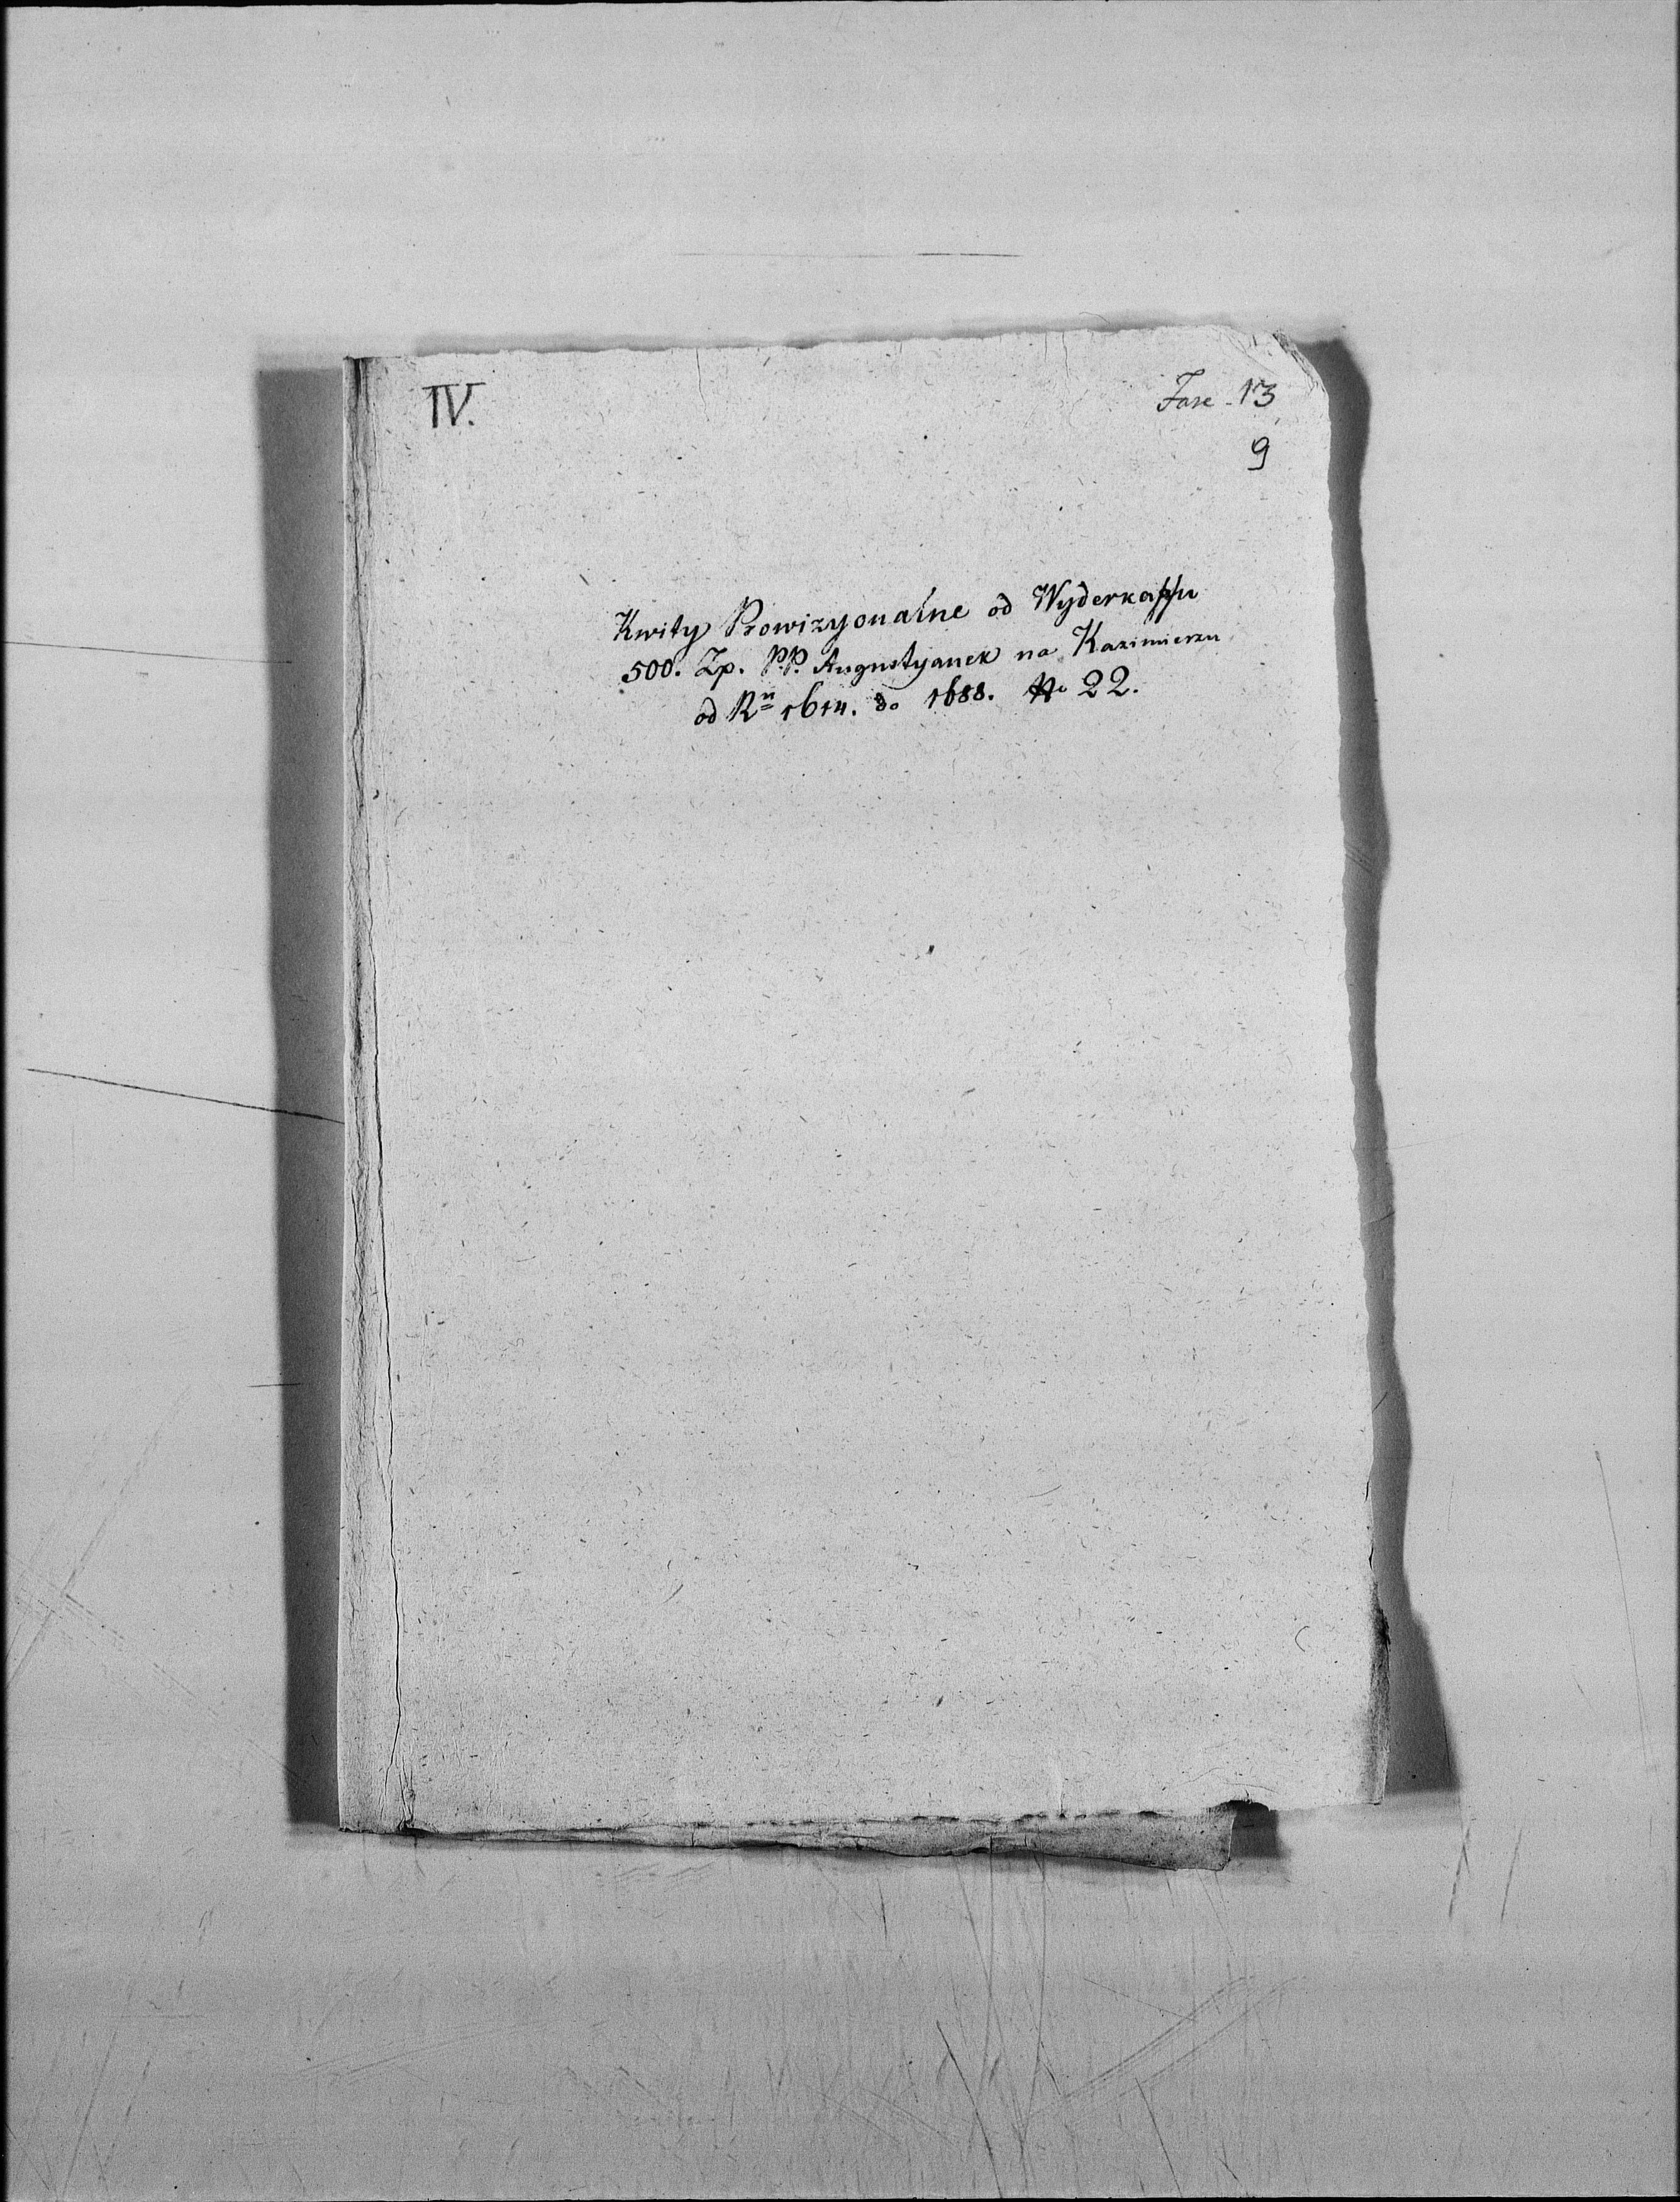 IV.
Fasc. 13
9
Kwity Prowizyonalne od Wyderkaffu
500. Zp. P.P. Augustyanek na Kazimierzu
od Ru 1614. do 1688. No 22.